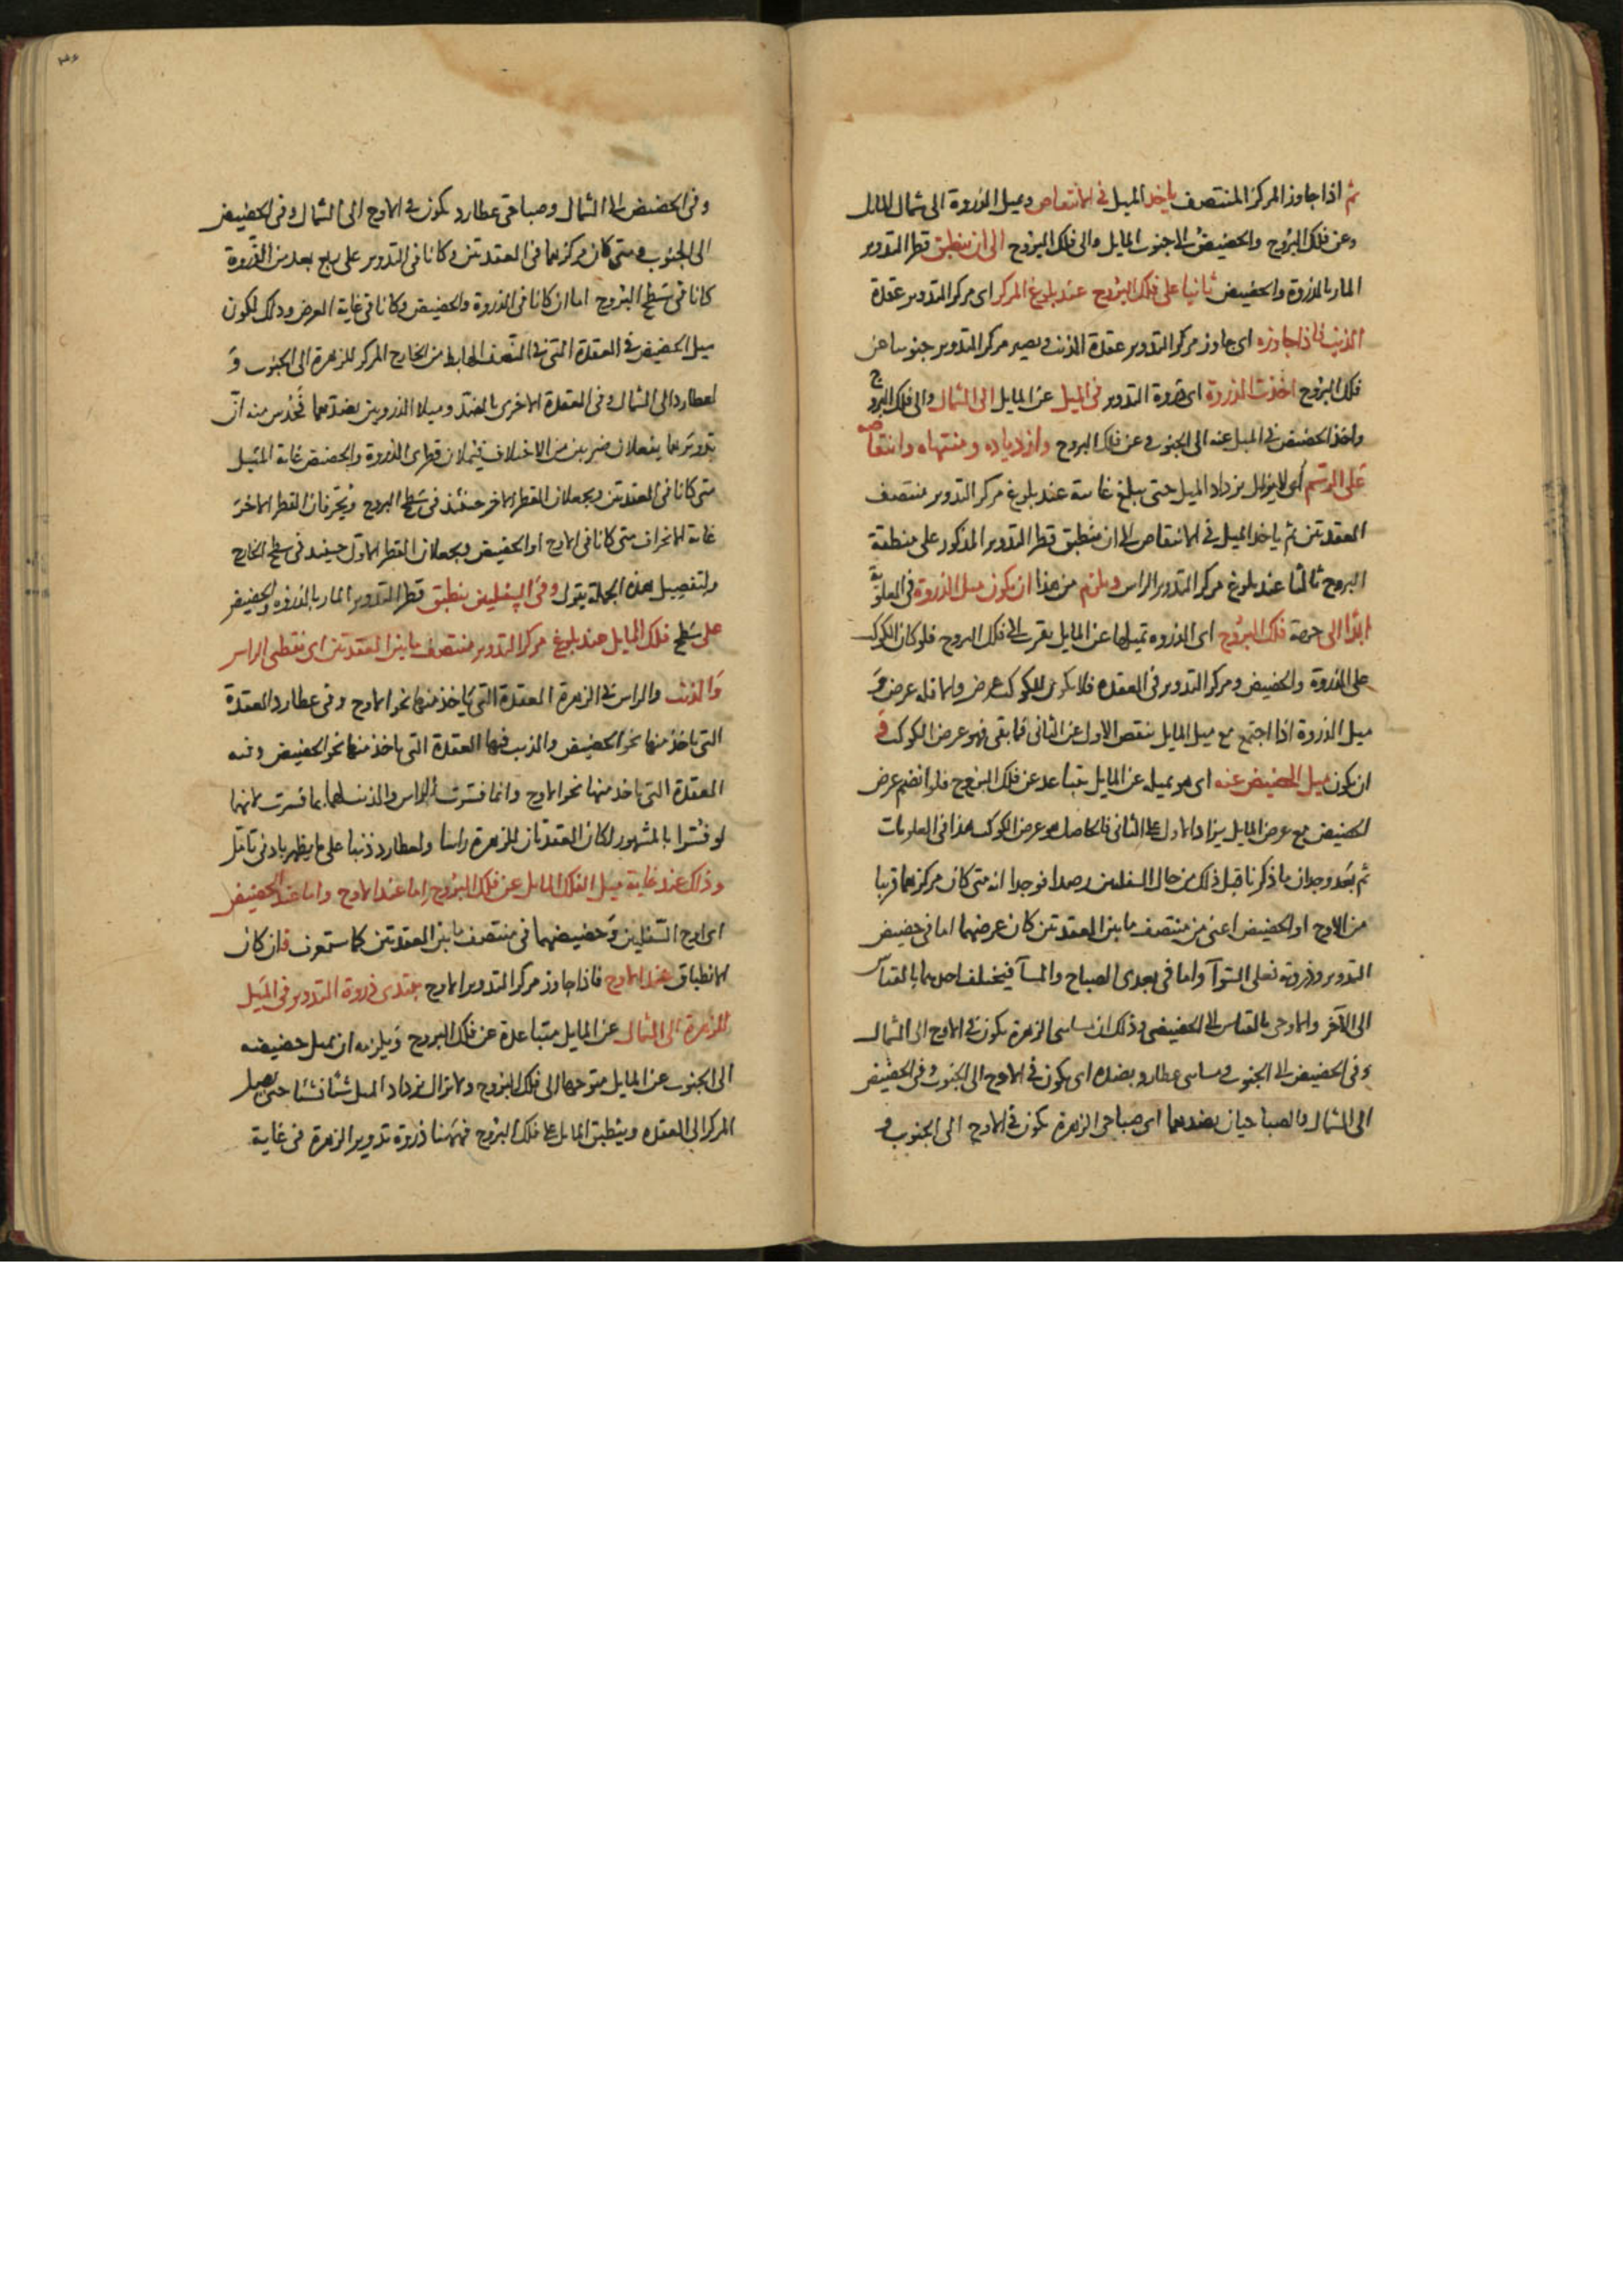 ثم اذا جاوز المركز المنتصف ياخذ الميل في الانتقاص ويميل الذروة الى شمال المايل
وعن فلك البروج والحضيض الى جنوب المايل والى فلك البروج الى ان ينطبق قطر التدوير
المار بالذروة والحضيض ثانيا على فلك البروج عند بلوغ المركز اى مركز التدوير عقدة
الذنب فاذا جاوزه اى جاوز مركز التدوير عقدة الذنب ويصير مركز التدوير جنوبيا عن
فلك البروج اخذت الذروة اى ذروة التدوير في الميل عن المايل الى الشمال والى فلك البروج
واخذ الحضيض في الميل عنه الى الجنوب وعن فلك البروج وازدياده ومنتهاه وانتقاصه
على الرسم اى لا يزال يزداد الميل حتى يبلغ غايته عند بلوغ مركز التدوير منتصف
العقدتين ثم ياخذ الميل في الانتقاص الى ان ينطبق قطر التدوير المذكور على منطقة
البروج ثالثا عند بلوغ مركز التدوير الراس ويلزم من هذا ان يكون ميل الذروة في العلوية
ابدا الى جهة فلك البروج اى الذروه تميلها عن المايل يقرب الى فلك البروج فلو كان الكوكب
على الذروة والحضيض ومركز التدوير في العقده فلا يكون للكوكب عرض ولما قله عرض و
ميل الذروة اذا اجتمع مع ميل المايل ينقص الاول عن الثانى فما بقى فهو عرض الكوكب و
ان يكون ميل الحضيض عنه اى هو بميله عن المايل يتباعد عن فلك البروج فلو انضم عرض
الحضيض مع عرض المايل يزاد الاول على الثانى فالحاصل هو عرض الكوكب هذا في العلويات
ثم بعد وجدان ما ذكرنا قبل ذلك من حال السفليين رصدا فوجدا انه متى كان مركزهما قريبا
من الاوج او الحضيض اعنى من منتصف ما بين العقدتين كان عرضهما اما في حضيض
التدوير وذروته فعلى السوآ واما في بعدى الصباح والمسآ فيختلف احدهما بالقياس
الى الآخر والاوجى بالقياس الى الحضيضى وذلك ان مسائى الزهرة يكون في الاوج الى الشمال
وفى الحضيض الى الجنوب ومسائى عطارد بضده اى يكون في الاوج الى الجنوب وفى الحضيض
الى الشمال والصباحيان بضدهما اى صباحى الزهرة يكون في الاوج الى الجنوب و
وفى الحضيض الى الشمال وصباحى عطارد يكون في الاوج الى الشمال وفى الحضيض
الى الجنوب ومتى كان مركزهما في العقدتين وكانا في التدوير على ربع بعد من الذروة
كانا في سطح البروج اما ان كانا في الذروة والحضيض وكانا في غاية العرض وذلك لكون
ميل الحضيض في العقدة التى في النصف الهابط من الخارج المركز للزهرة الى الجنوب و
لعطارد الى الشمال وفى العقدة الاخرى بالضد وميلا الذروتين بضدهما فحدس منه ان
تدويريهما يفعلان ضربين من الاختلاف فيميلان قطرى الذروة والحضيض غاية الميل
متى كانا في العقدتين ويجعلان القطر الاخر حينئذ في سطح البروج ويحرفان القطر الاخر
غاية الانحراف متى كانا في الاوج او الحضيض ويجعلان القطر الاول حينئذ في سطح الخارج
ولتفصيل هذه الجملة يقول وفى السفليين ينطبق قطر التدوير المار بالذروه والحضيض
على سطح فلك المايل عند بلوغ مركز التدوير منتصف ما بين العقدتين اى نقطتى الراس
والذنب والراس في الزهرة العقدة التى ياخذ منها نحو الاوج وفى عطارد العقدة
التى ياخذ منها نحو الحضيض والذنب فيها العقدة التى ياخذ منها نحو الحضيض وفيه
العقدة التى ياخذ منها نحو الاوج وانما فسرت الراس والذنب لهما بما فسرت لانهما
لو فسرا بالمشهور لكان العقدتان للزهرة راسا ولعطارد ذنبا على ما يظهر بادنى تامل
وذلك عند غاية ميل الفلك المايل عن فلك البروج اما عند الاوج واما عند الحضيض
اى اوج السفليين وحضيضهما في منتصف ما بين العقدتين كما ستعرف فان كان
الانطباق عند الاوج فاذا جاوز مركز التدوير الاوج يبتدى ذروة التدوير في الميل
للزهرة الى الشمال عن المايل متباعدة عن فلك البروج ويلزمه ان يميل حضيضه
الى الجنوب عن المايل متوجها الى فلك البروج ولا يزال يزداد الميل شئا فشئا حتى يصل
المركز الى العقده وينطبق المايل على فلك البروج فههنا ذروة تدوير الزهرة في غاية